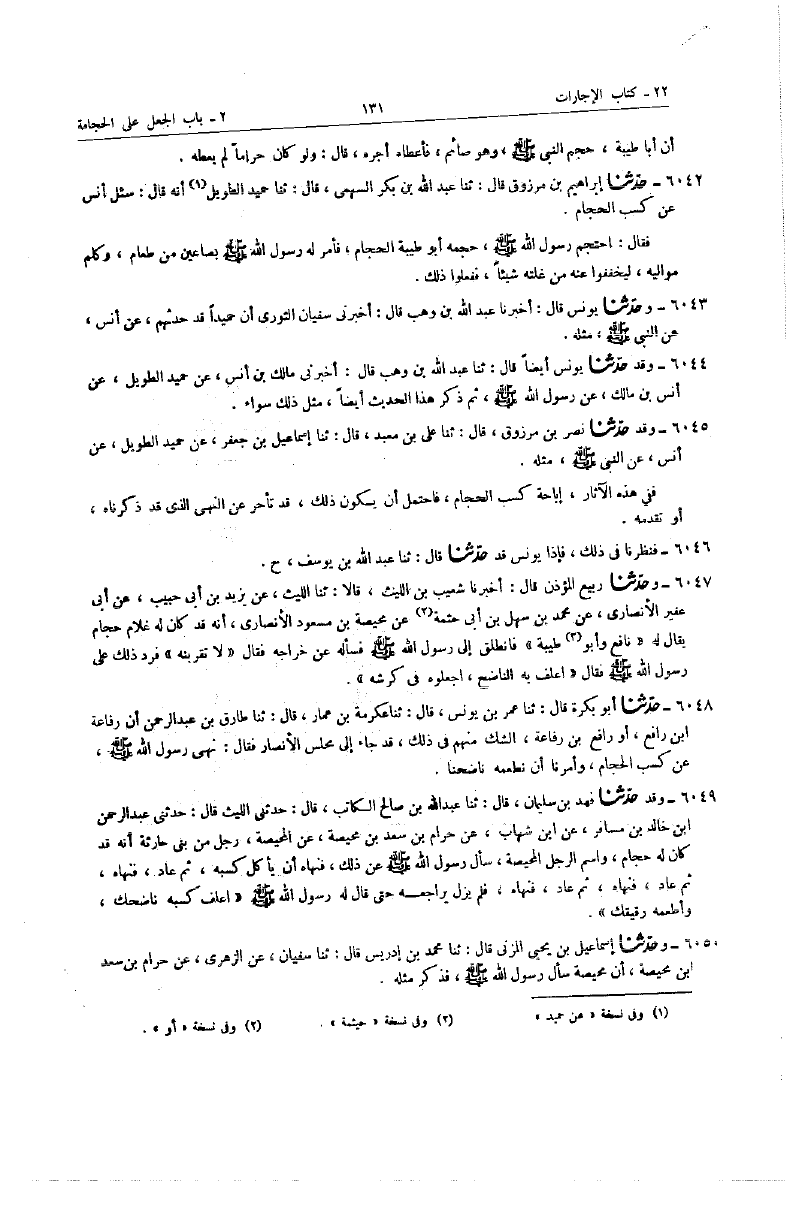 ٢٢ - كتاب الإجارات
١٣١
٢ - باب الجعل على الحجامة
أن أبا طيبة ، حجم النبي ﷺ ، وهو صائم ، فأعطاه أجره ، قال : ولو كان حراماً لم يعطه .
٦٠٤٢ - حدّثنا إبراهيم بن مرزوق قال : ثنا عبد الله بن بكر السهمى ، قال : ثنا حميد الطويل(١) أنه قال : سئل أنس
عن كسب الحجام .
فقال : احتجم رسول الله ﷺ ، حجمه أبو طيبة الحجام ، فأمر له رسول الله ﷺ بصاعين من طعام ، وكلم
مواليه ، ليخففوا عنه من غلته شيئاً ، ففعلوا ذلك .
٦٠٤٣ - وحدّثنا يونس قال : أخبرنا عبد الله بن وهب قال : أخبرنى سفيان الثورى أن حميداً قد حدثهم ، عن أنس ،
عن النبي ﷺ ، مثله .
٦٠٤٤ - وقد حدّثنا يونس أيضاً قال : ثنا عبد الله بن وهب قال : أخبرنى مالك بن أنس ، عن حميد الطويل ، عن
أنس بن مالك ، عن رسول الله ﷺ ، ثم ذكر هذا الحديث أيضاً ، مثل ذلك سواء .
٦٠٤٥ - وقد حدّثنا نصر بن مرزوق ، قال : ثنا على بن معبد ، قال : ثنا إسماعيل بن جعفر ، عن حميد الطويل ، عن
أنس ، عن النبي ﷺ ، مثله .
فى هذه الآثار ، إباحة كسب الحجام ، فاحتمل أن يكون ذلك ، قد تأحر عن النهى الذى قد ذكرناه ،
أو تقدمه .
٦٠٤٦ - فنظرنا فى ذلك ، فإذا يونس قد حدّثنا قال : ثنا عبد الله بن يوسف ، ح .
٦٠٤٧ - وحدّثنا ربيع المؤذن قال : أخبرنا شعيب بن الليث ، قالا : ثنا الليث ، عن يزيد بن أبى حبيب ، عن أبى
عفير الأنصارى ، عن محمد بن سهل بن أبى حثمة(٢) عن محيصة بن مسعود الأنصارى ، أنه قد كان له غلام حجام
يقال له « نافع وأبو(٣) طيبة » فانطلق إلى رسول الله ﷺ فسأله عن خراجه فقال « لا تقربنه » فرد ذلك على
رسول الله ﷺ فقال « اعلف به الناضح ، اجعلوه فى كرشه » .
٦٠٤٨ - حدّثنا أبو بكرة قال : ثنا عمر بن يونس ، قال : ثنا عكرمة بن عمار ، قال : ثنا طارق بن عبدالرحمن أن رفاعة
ابن رافع ، أو رافع بن رفاعة ، الشك منهم فى ذلك ، قد جاء إلى مجلس الأنصار فقال : نهى رسول الله ﷺ ،
عن كسب الحجام ، وأمرنا أن نطعمه ناضحنا .
٦٠٤٩ - وقد حدّثنا فهد بن سليمان ، قال : ثنا عبدالله بن صالح الكاتب ، قال : حدثنى الليث قال : حدثنى عبدالرحمن
ابن خالد بن مسافر ، عن ابن شهاب ، عن حرام بن سعد بن محيصة ، عن المحيصة ، رجل من بنى حارثة أنه قد
كان له حجام ، واسم الرجل المحيصة ، سأل رسول الله ﷺ عن ذلك ، فنهاه أن يأكل كسبه ، ثم عاد ، فنهاه ،
ثم عاد ، فنهاه ، ثم عاد ، فنهاه ، فلم يزل يراجعـه حتى قال له رسول الله ﷺ « اعلف كسبه ناضحك ،
وأطعمه رقيقك » .
٦٠٥٠ - وحدّثنا إسماعيل بن يحيى المزنى قال : ثنا محمد بن إدريس قال : ثنا سفيان ، عن الزهرى ، عن حرام بن سعد
ابن محيصة ، أن محيصة سأل رسول الله ﷺ ، فذكر مثله .
(١) وفى نسخة « عن حميد »
(٢) وفى نسخة « حيثمة » .
(٢) وفى نسخة « أو » .